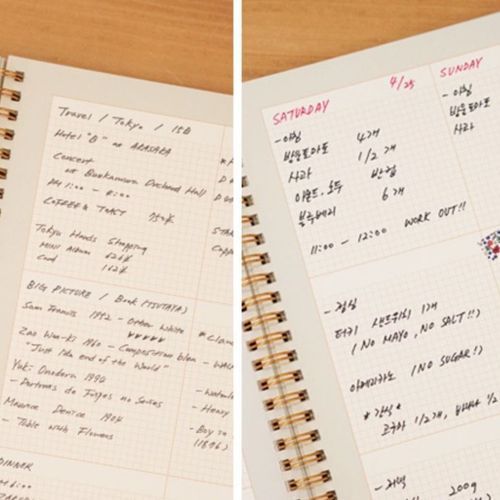 Travel / Tokyo / 15D
Hotel "B" at AKASAKA
Concert
at Bunkamura Orchard Hall
PM 7:00 - 8:00
COFFEE & TOAST 750¥
Tokyo Hands Shopping
MINI Album 626¥
Card 162¥
BIG PICTURE / Book (TSUTAYA)
Sam Francis 1992 - Other White
VVVVV
Zao Wou-Ki 1960 - Composition bleu
"Just the end of the World"
Yuki Onodera 1992
- Portraits de Fripes no Series
Maurice Denice 1904
- Table with Flowers
DINNER
SATURDAY 4/25
- 아침
방울토마토 4개
사과 1/2 개
아몬드, 호두 반컵
블루베리 6개
11:00 - 12:00 WORK OUT!!
- 점심
터키 샌드위치 1개
(NO MAYO, NO SALT!!)
아메리카노 (NO SUGAR!)
* 간식 *
1/2개, 바나나 1/2
- 저녁
200g
SUNDAY
- 아침
방울토마토
사과